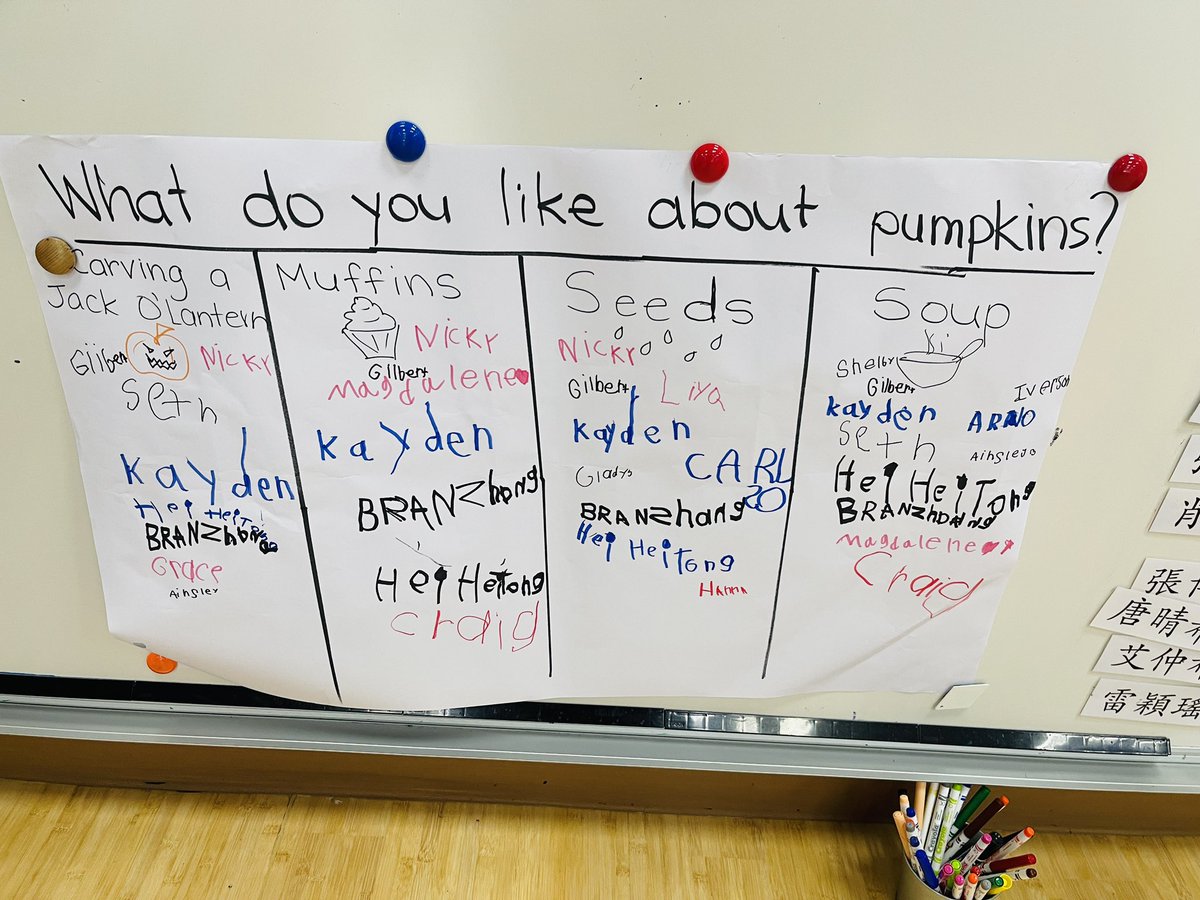 What do you like about pumpkins?
Carving a
Jack O'Lantern
Gilbert
Nicky
Seth
kayden
Hei HeiTong
BRANZhang
Grace
Ainsley
Muffins
Nicky
Gilbert
Magdalene
kayden
BRANZhang
Hei Heitong
craig
Seeds
Nicky
Gilbert
Liya
kayden
Gladys
CARL
BRANZhang
Hei HeiTong
Hanna
Soup
Ki
Shelby
Gilbert
Iverson
kayden
ARNO
Seth
Hei HeiTong
BRANZhang
Magdalene
Craig
唐晴
艾仲
雷穎瑤